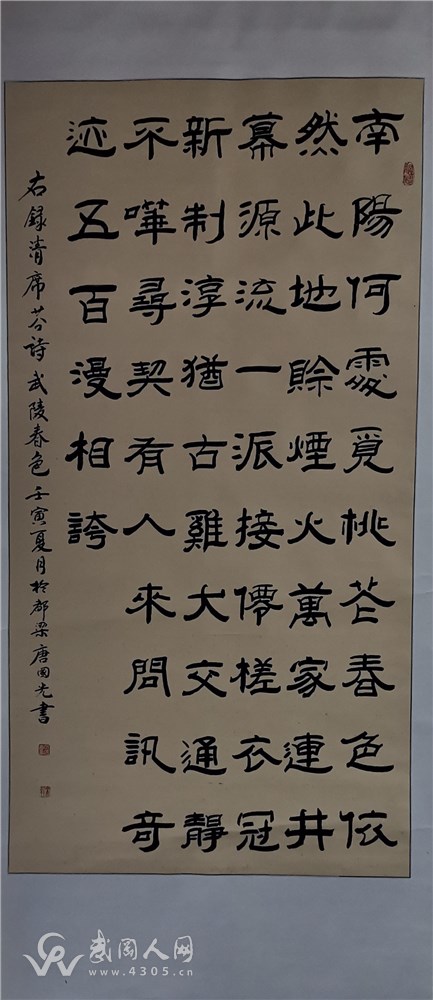 南陽何處覓桃花春色依
然此地賒煙火萬家連井
幕源流一派接僊槎衣冠
新制淳猶古雞犬交通靜
不嘩尋契有人來問訊奇
迹五百漫相誇
右録清席芬詩武陵春色壬寅夏月於都梁唐國光書
武冈人网
www.4305.cn